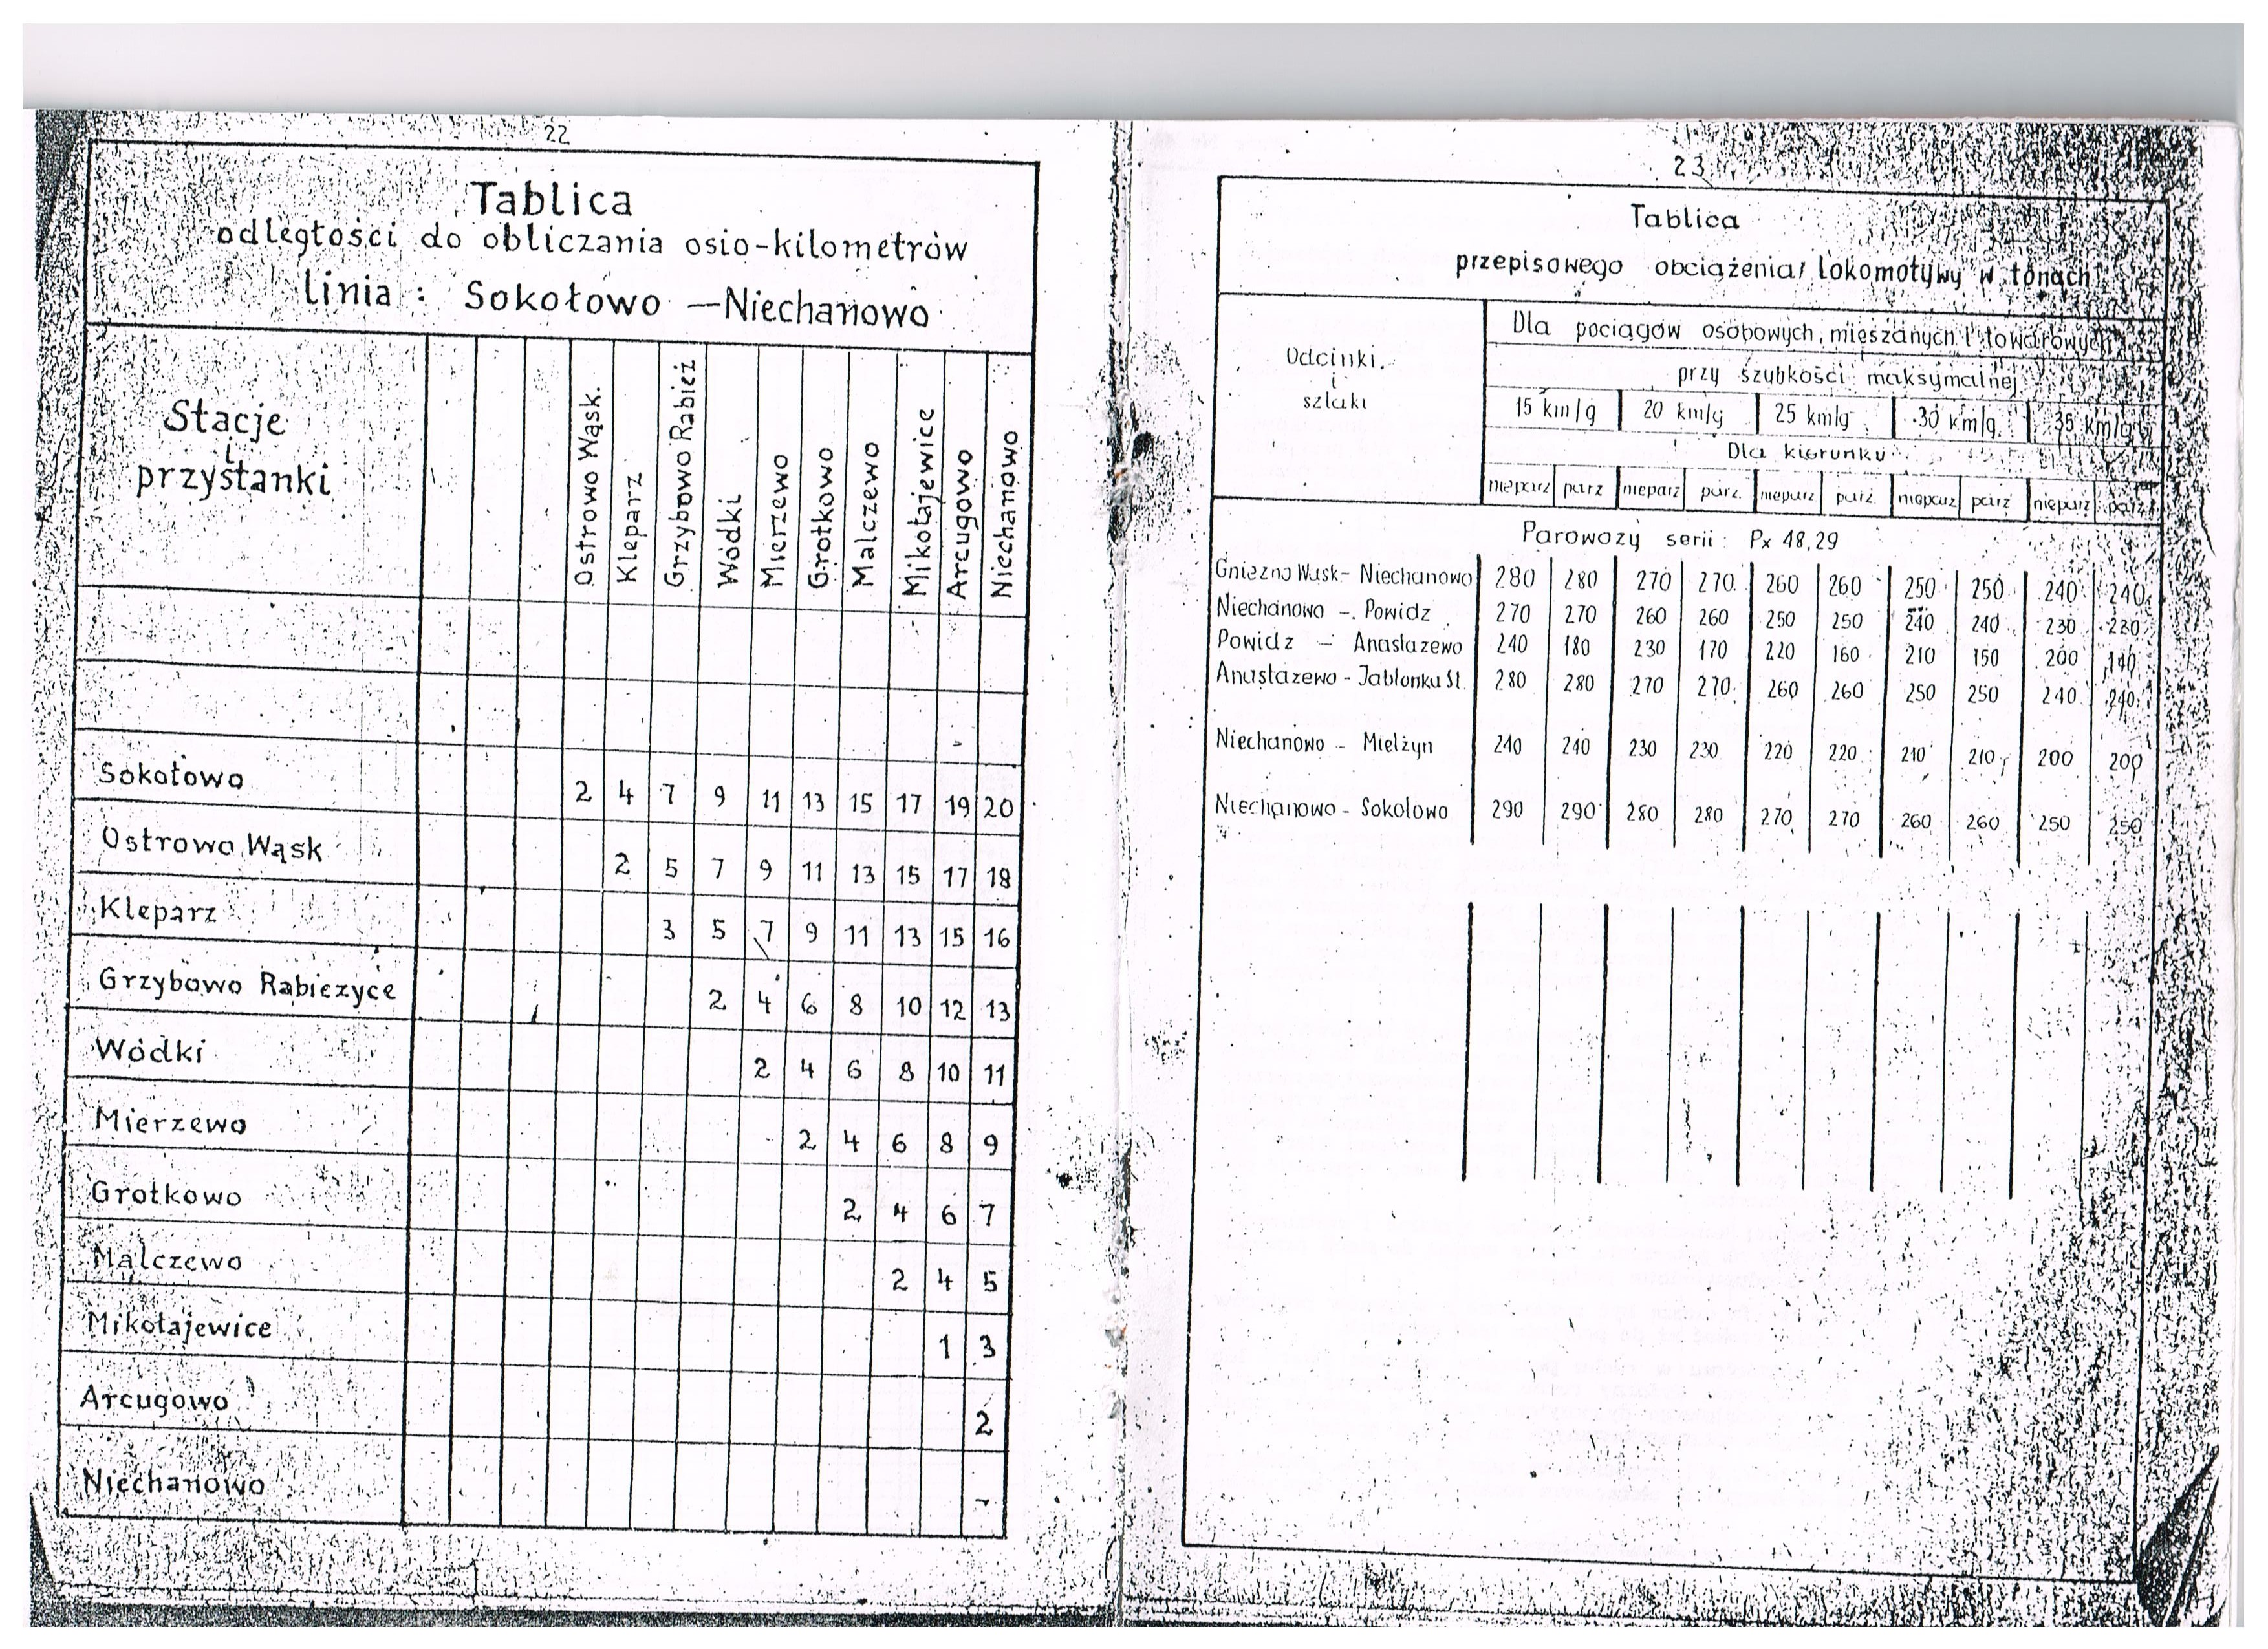 22
Tablica
odległości do obliczania osio-kilometrów
linia : Sokołowo — Niechanowo
Stacje
i
przystanki
Ostrowo Wąsk.
Kleparz
Grzybowo Rabież
Wódki
Mierzewo
Grotkowo
Malczewo
Mikołajewice
Arcugowo
Niechanowo
Sokołowo 2 4 7 9 11 13 15 17 19 20
Ostrowo Wąsk 2 5 7 9 11 13 15 17 18
Kleparz 3 5 7 9 11 13 15 16
Grzybowo Rabieżyce 2 4 6 8 10 12 13
Wódki 2 4 6 8 10 11
Mierzewo 2 4 6 8 9
Grotkowo 2 4 6 7
Malczewo 2 4 5
Mikołajewice 1 3
Arcugowo 2
Niechanowo -
23
Tablica
przepisowego obciążenia lokomotywy w tonach
Odcinki
i
szlaki
Dla pociągów osobowych, mieszanych i towarowych
przy szybkości maksymalnej
15 km/g 20 km/g 25 km/g 30 km/g 35 km/g
Dla kierunku
nieparz parz nieparz parz. nieparz parz. nieparz parz nieparz parz
Parowozy serii Px 48,29
Gniezno Wask- Niechanowo 280 280 270 270 260 260 250 250 240 240
Niechanowo - Powidz 270 270 260 260 250 250 240 240 230 230
Powidz - Anastazewo 240 180 230 170 220 160 210 150 200 140
Anastazewo - Jabłonka Sł. 280 280 270 270 260 260 250 250 240 240
Niechanowo - Mielżyn 240 240 230 230 220 220 210 210 200 200
Niechanowo - Sokołowo 290 290 280 280 270 270 260 260 250 250